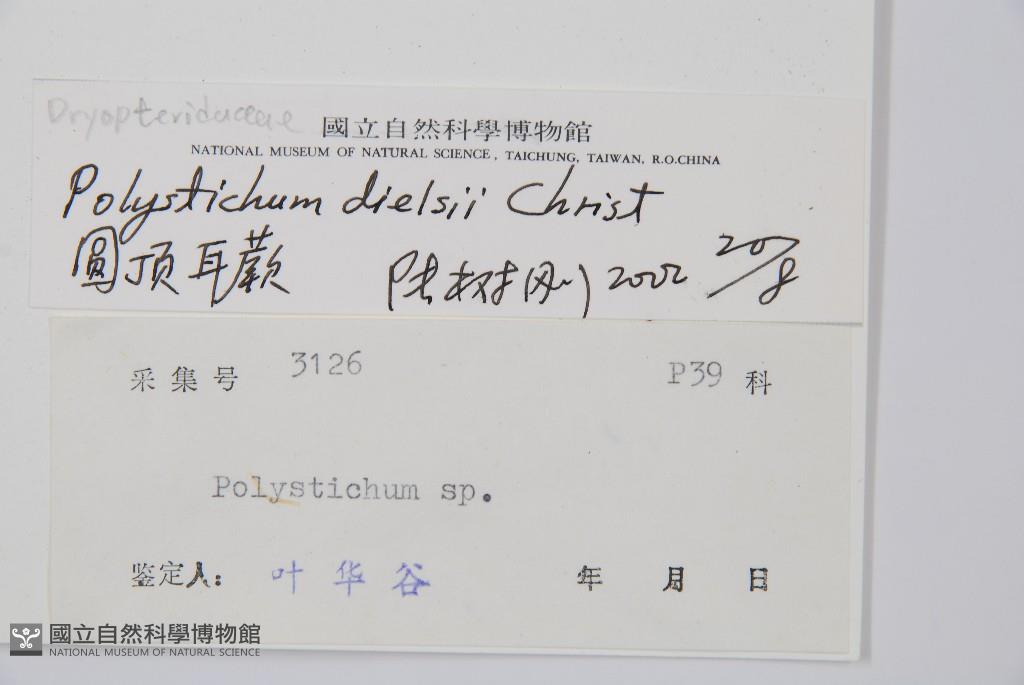 Dryopteridaceae
國立自然科學博物館
NATIONAL MUSEUM OF NATURAL SCIENCE, TAICHUNG, TAIWAN, R.O.CHINA
Polystichum dielsii Christ
圓顶耳蕨 陆树刚 2002 20/8
采集号 3126 P39 科
Polystichum sp.
鉴定人: 叶华谷 年 月 日
國立自然科學博物館
NATIONAL MUSEUM OF NATURAL SCIENCE